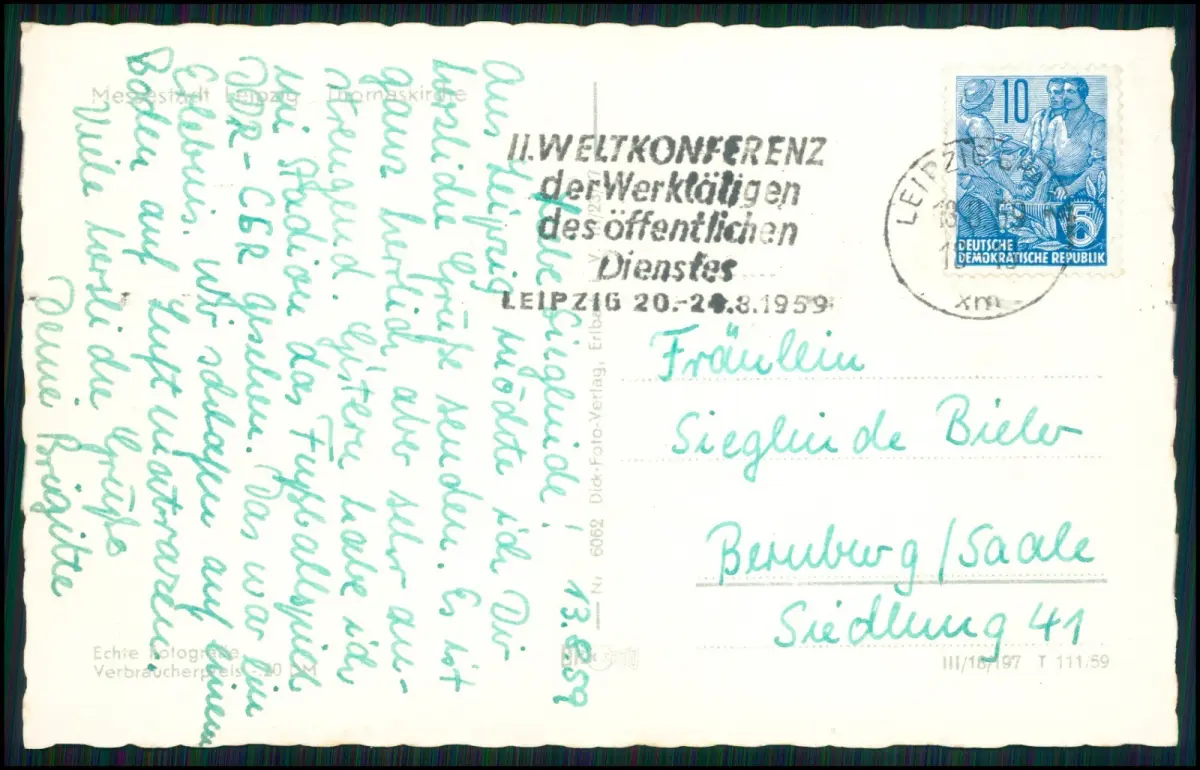 Messestadt Leipzig Thomaskirche
13.8.59
Liebe Sieglinde!
Aus Leipzig möchte ich Dir
herzliche Grüße senden. Es ist
ganz herrlich aber sehr an-
strengend. Gestern habe ich
im Stadion das Fußballspiel
DDR-CSR gesehen. Das war ein
Erlebnis. Wir schlafen auf einem
Boden auf Luftmatrazen.
Viele herzliche Grüße
Deine Brigitte
Echte Fotografie
Verbraucherpreis -.20 DM
Nr. 6062 Dick-Foto-Verlag, Erlbach
II. WELTKONFERENZ
der Werktätigen
des öffentlichen
Dienstes
LEIPZIG 20.-24.8.1959
LEIPZIG
10
5
DEUTSCHE
DEMOKRATISCHE REPUBLIK
xm
Fräulein
Sieglinde Bieler
Bernburg/Saale
Siedlung 41
III/18/197 T 111/59